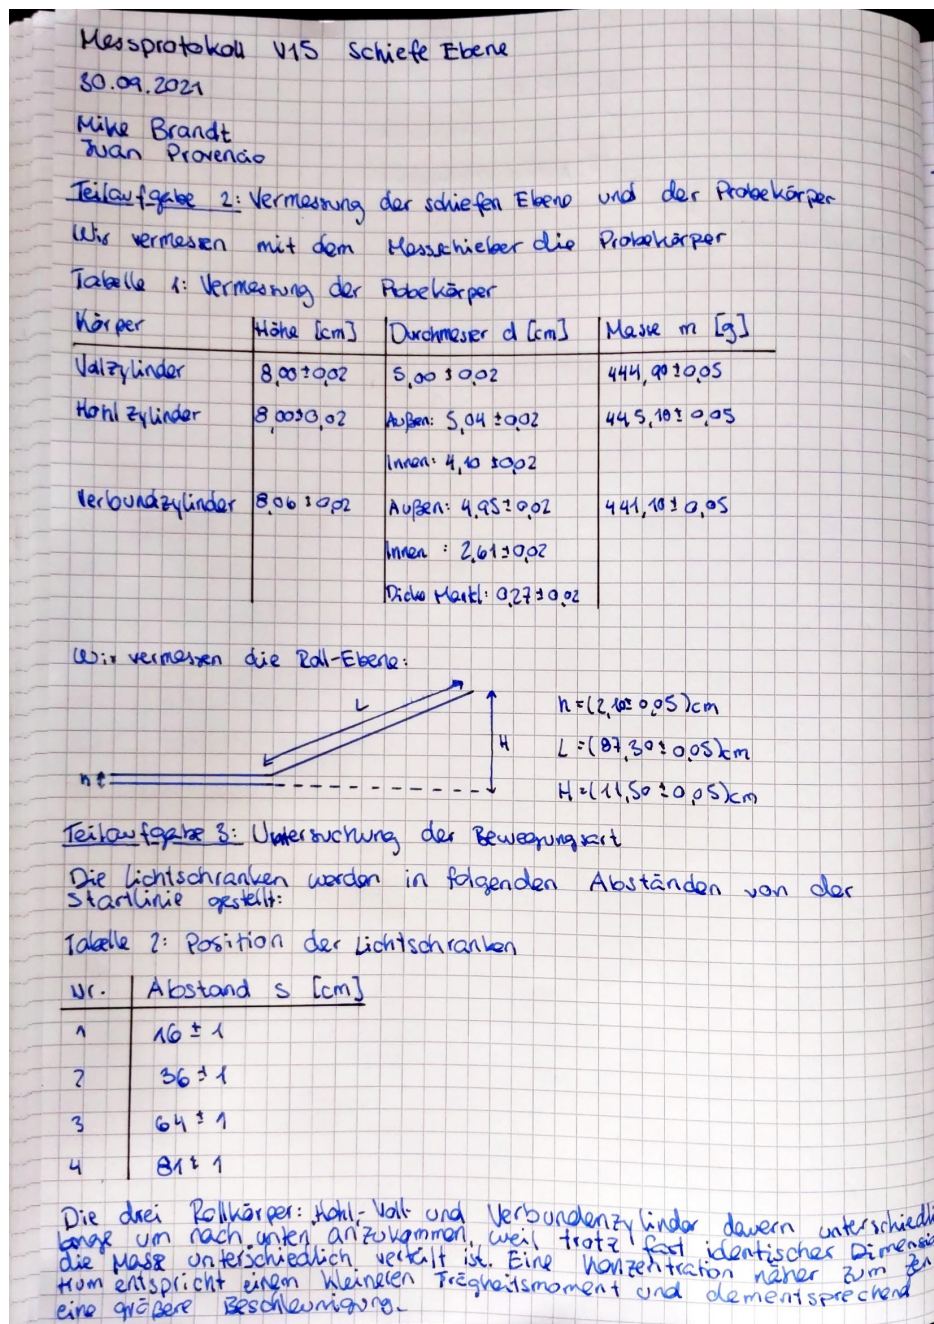 Messprotokoll V15 Schiefe Ebene
30.09.2021
Mike Brandt
Juan Provencio
Teilaufgabe 2: Vermessung der schiefen Ebene und der Probekörper
Wir vermessen mit dem Messchieber die Probekörper
Tabelle 1: Vermessung der Probekörper
Körper Höhe [cm] Durchmesser d [cm] Masse m [g]
Vollzylinder 8,00±0,02 5,00±0,02 444,90±0,05
Hohlzylinder 8,00±0,02 Außen: 5,04±0,02 445,10±0,05
Innen: 4,10±0,02
Verbundzylinder 8,06±0,02 Außen: 4,95±0,02 441,10±0,05
Innen: 2,61±0,02
Dicke : 0,27±0,02
Wir vermessen die Roll-Ebene:
L
H
h
h=(2,10±0,05)cm
L=(87,30±0,05)cm
H=(11,50±0,05)cm
Teilaufgabe 3: Untersuchung der Bewegungsart
Die Lichtschranken werden in folgenden Abständen von der
Startlinie gestellt:
Tabelle 2: Position der Lichtschranken
Nr. Abstand s [cm]
1 16±1
2 36±1
3 64±1
4 81±1
Die drei Rollkörper: Hohl-, Voll- und Verbundenzylinder dauern unterschiedli
lange um nach unten anzukommen, weil trotz fast identischer Dimensio
die Masse unterschiedlich verteilt ist. Eine Konzentration näher zum Zen
trum entspricht einem kleineren Trägheitsmoment und dementsprechend
eine größere Beschleunigung.